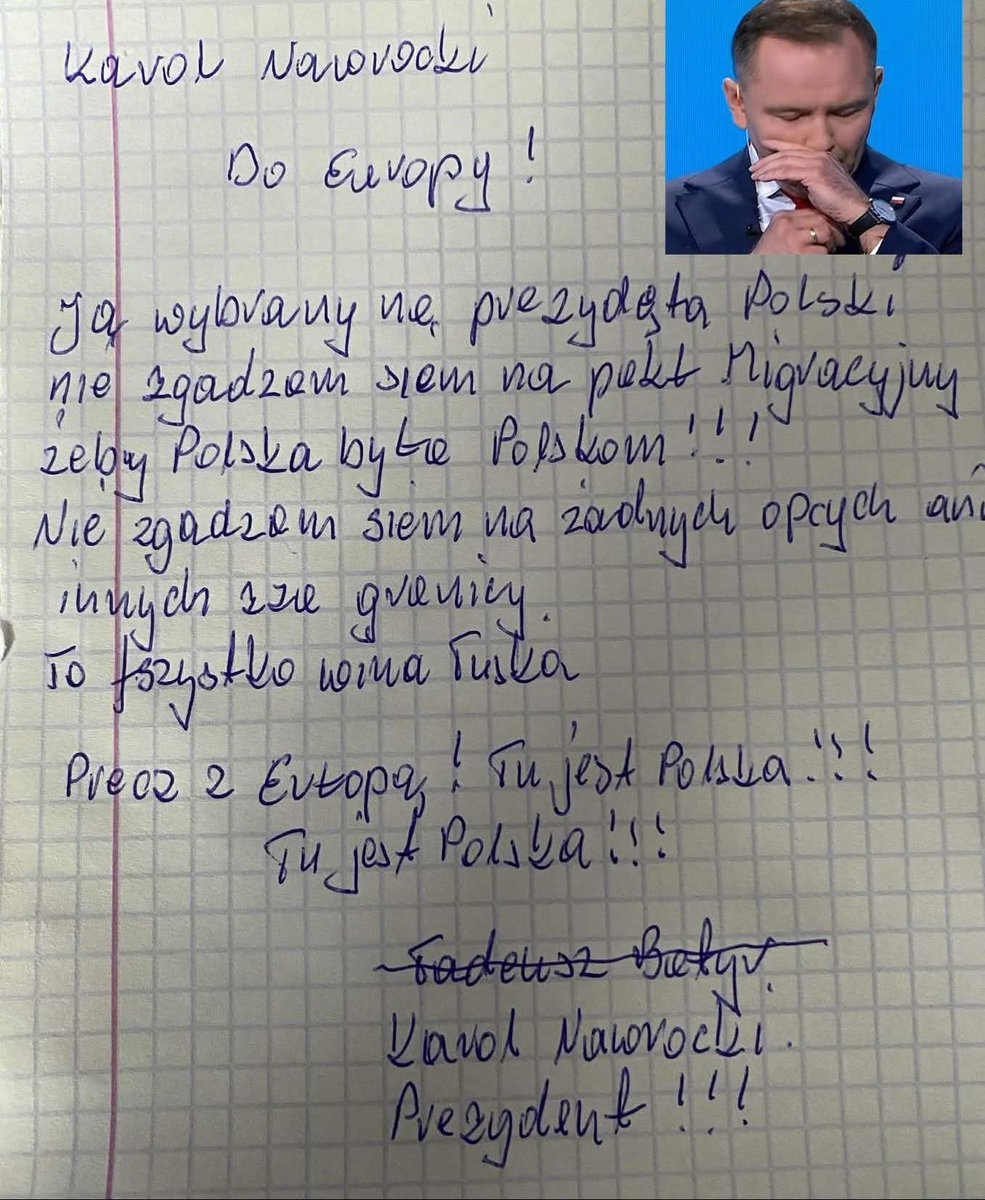 Karol Nawrocki
Do Europy!
Ją wybrany nę prezydęta Polski
nie zgadzam siem na pakt Migracyjny
żeby Polska była Polskom!!!
Nie zgadzam siem na żadnych opcych ani
innych zza granicy.
To fszystko wina Tuska
Precz z Eełropą! Tu jest Polska!!!
Tu jest Polska!!!
Tadeusz Batyr.
Karol Nawrocki.
Prezydent!!!